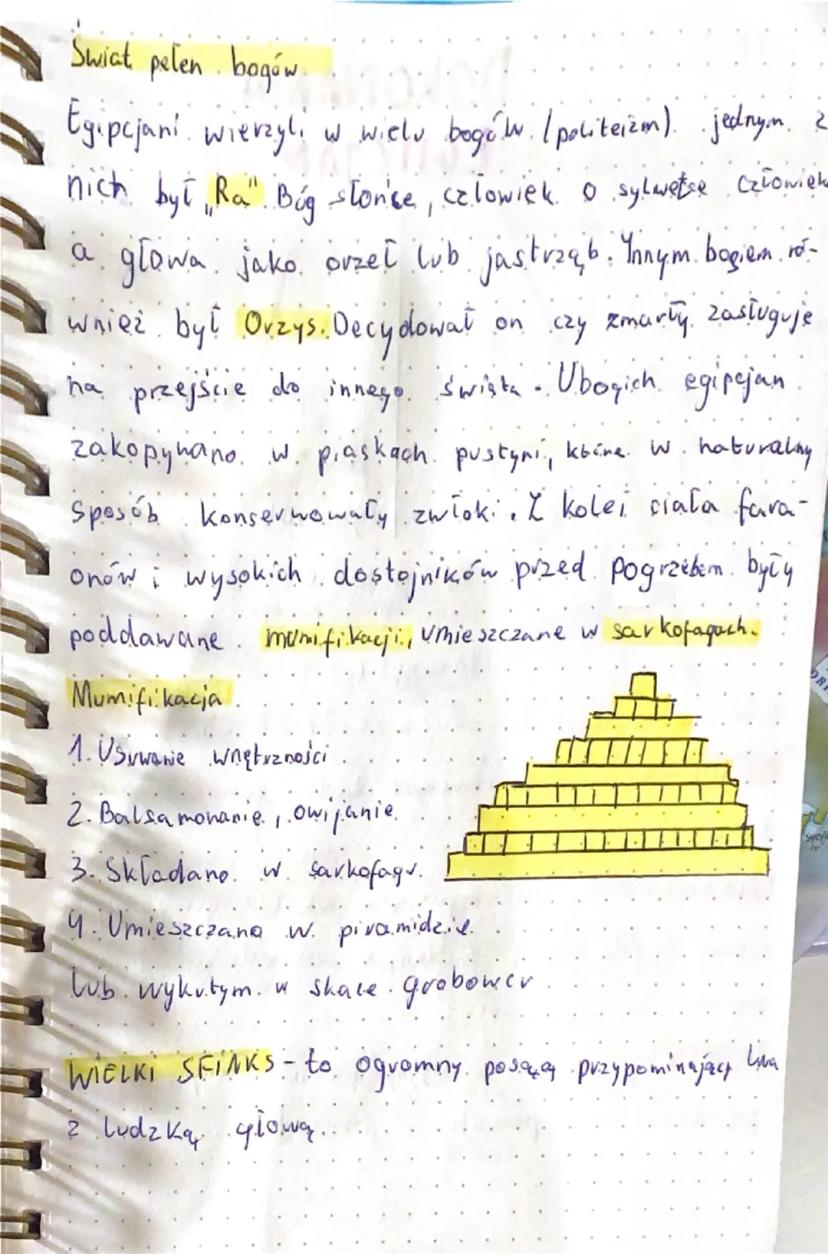 Świat pełen bogów
Egipcjani wierzyli w wielu bogów (politeizm) jednym z
nich był „Ra" Bóg słońce, człowiek o sylwetse człowiek
a głowa jako orzeł lub jastrząb. Innym bogiem ró-
wnież był Orzys. Decydował on czy zmarły zasługuje
na przejście do innego świata. Ubogich egipcjan
zakopywano w piaskach pustyni, które w naturalny
sposób konserwowały zwłoki. Z kolei ciała fara-
onów i wysokich dostojników przed pogrzebem były
poddawane mumifikacji, umieszczane w sarkofagach.
Mumifikacja
1. Usuwanie wnętrzności
2. Balsamowanie, owijanie
3. Składano w sarkofagu.
4. Umieszczano w piramidzie
lub wykutym w skale grobowcu
WIELKI SFINKS - to ogromny posąg przypominający lwa
z ludzką głową.